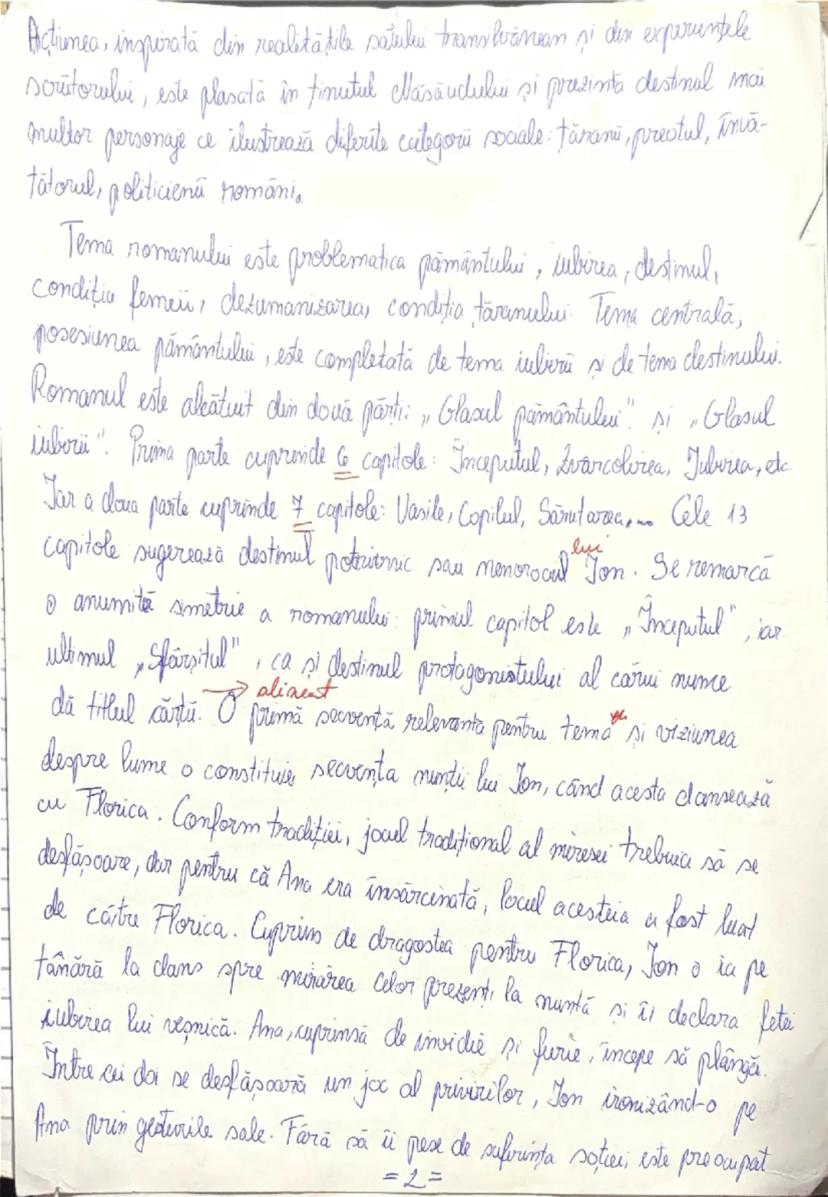 Acțiunea, inspirată din realitățile satului transilvănean și din experiențele
scriitorului, este plasată în ținutul Năsăudului și prezintă destinul mai
multor personaje ce ilustrează diferite categorii sociale: țăranii, preotul, învă-
țătorul, politicienii români.
Tema romanului este problematica pământului, iubirea, destinul,
condiția femeii, dezumanizarea, condiția țăranului. Tema centrală,
posesiunea pământului, este completată de tema iubirii și de tema destinului.
Romanul este alcătuit din două părți: „Glasul pământului" și „Glasul
iubirii". Prima parte cuprinde 6 capitole: Începutul, Zvârcolirea, Iubirea, etc
Iar a doua parte cuprinde 7 capitole: Vasile, Copilul, Sărutarea,... Cele 13
capitole sugerează destinul potrivnic sau nenorocul lui Ion. Se remarcă
o anumită simetrie a romanului: primul capitol este „Începutul", iar
ultimul „Sfârșitul", ca și destinul protagonistului al cărui nume
dă titlul cărții. → alineat O primă secvență relevanta pentru temă și viziunea
despre lume o constituie secvența nunții lui Ion, când acesta dansează
cu Florica. Conform tradiției, jocul tradițional al miresei trebuia să se
desfășoare, dar pentru că Ana era însărcinată, locul acesteia a fost luat
de către Florica. Cuprins de dragostea pentru Florica, Ion o ia pe
tânără la dans spre mirarea celor prezenți la nuntă și îi declara fetei
iubirea lui veșnică. Ana, cuprinsă de invidie și furie, începe să plângă.
Între cei doi se desfășoară un joc al privirilor, Ion ironizând-o pe
Ana prin gesturile sale. Fără să îi pese de suferința soției, este preocupat
=2=